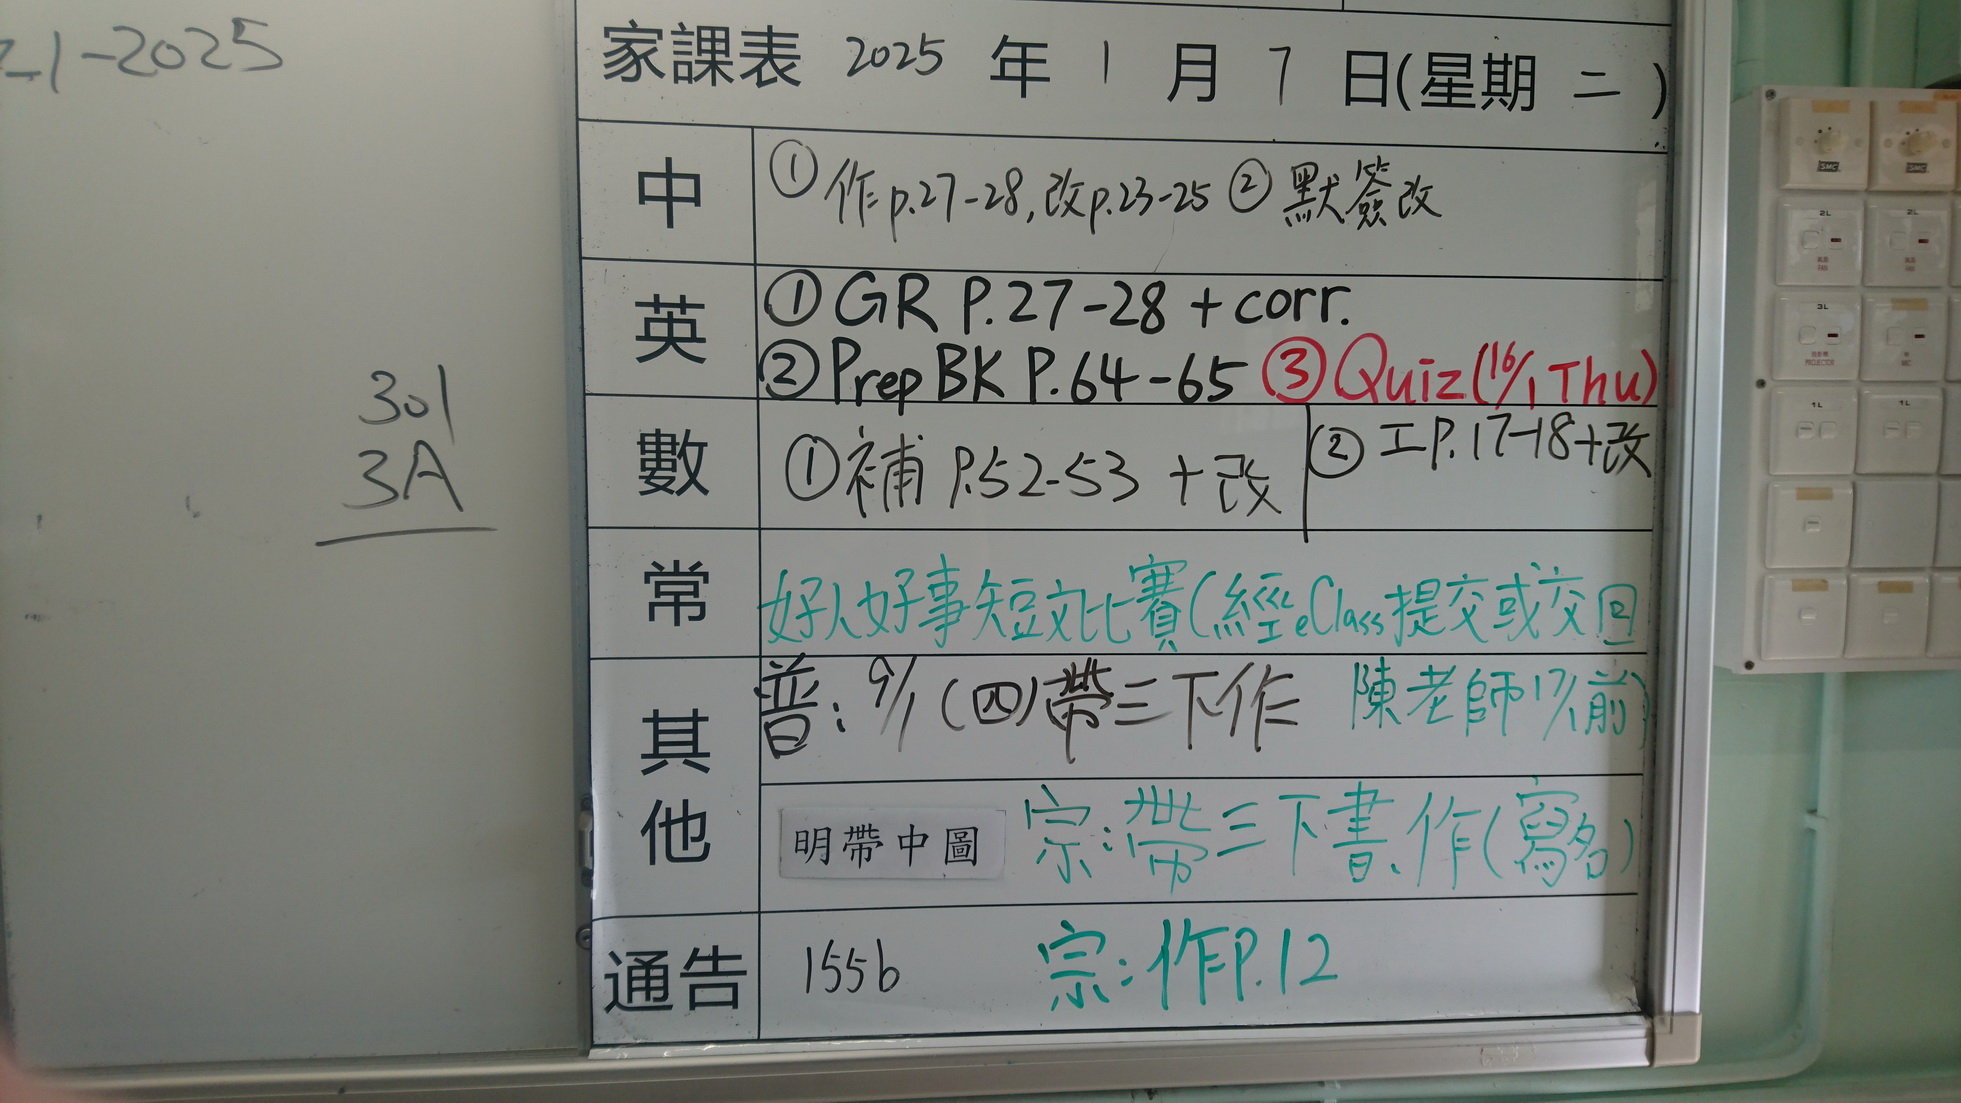 -1-2025
301
3A
家課表 2025 年 1 月 7 日(星期 二 )
中 ①作p.27-28,改p.23-25 ②默簽改
英 ①GR P.27-28 + corr.
②Prep BK P.64-65 ③Quiz(16/1 Thu)
數 ①補 P.52-53 + 改 ②工P.17-18+改
常 好人好事短文比賽(經eClass提交或交回
陳老師17/1前)
其他 普:9/1(四)帶三下作
明帶中圖 宗:帶三下書、作(寫名)
通告 155b 宗:作P.12
2L 2L
3L 1R
PROJECTOR MIC
1L 1L